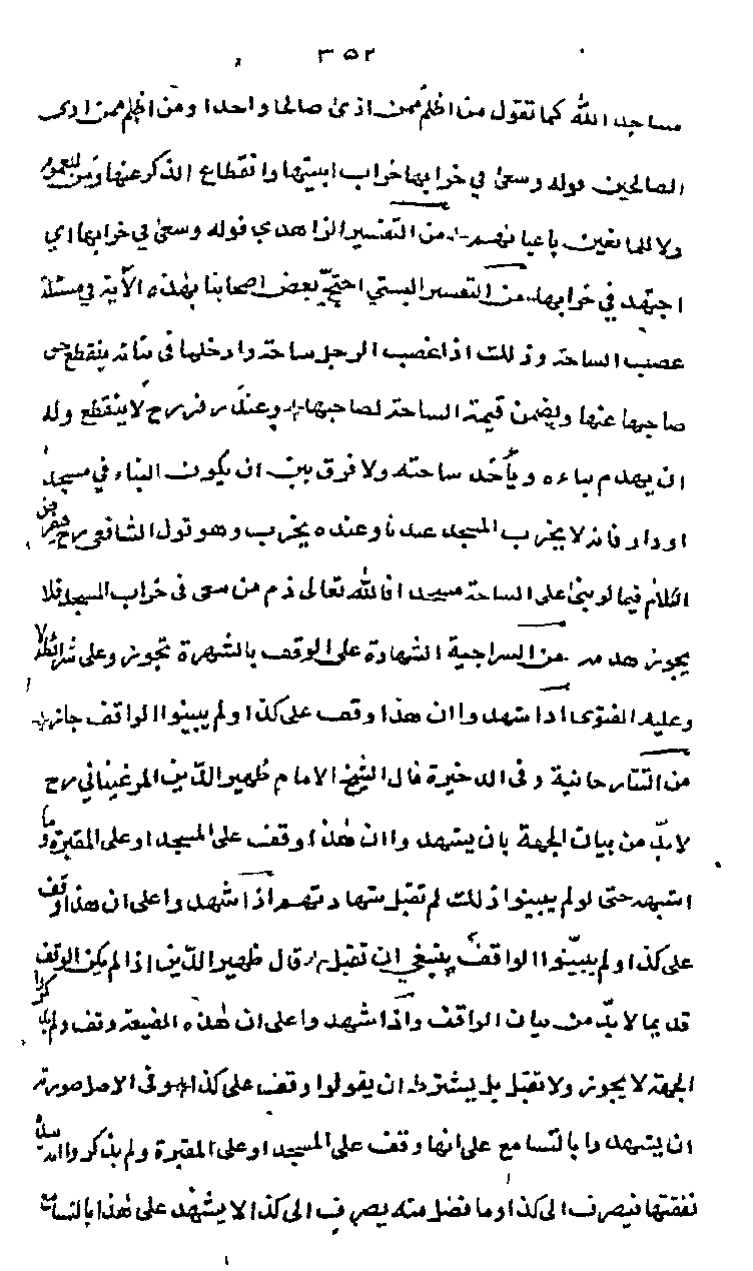 ٣٥٢
مساجد الله كما تقول من اظلم ممن اذى صالحا واحدا ومن اظلم ممن اذى
الصالحين قوله وسعى في خرابها خراب ابنيتها وانقطاع الذكر عنها
ولا للمانعين باعيانهم من التفسير الزاهدي قوله وسعى في خرابها اي
اجتهد في خرابها من التفسير البستي احتج بعض اصحابنا بهذه الآية في مسئلة
غصب الساحة وذلك اذا غصب الرجل ساحة وادخلها في بنائه ينقطع حق
صاحبها عنها ويضمن قيمة الساحة لصاحبها وعند زفر رح لا ينقطع وله
ان يهدم بناءه ويأخذ ساحته ولا فرق بين ان يكون البناء في مسجد
او دار فانه لا يخرب المسجد عندنا وعنده يخرب وهو قول الشافعي رح
الكلام فيما لو بنى على الساحة مسجدا فالله تعالى ذم من سعى في خراب المسجد فلا
يجوز هدمه من السراجية الشهادة على الوقف بالشهرة تجوز وعلى شرائطه لا
وعليه الفتوى اذا شهدوا ان هذا وقف على كذا ولم يبينوا الواقف جاز
من التتارخانية وفي الذخيرة قال الشيخ الامام ظهير الدين المرغيناني رح
لا بد من بيان الجهة بان يشهدوا ان هذا وقف على المسجد او على المقبرة وما
اشبهه حتى لو لم يبينوا ذلك لم تقبل شهادتهم اذا شهدوا على ان هذا وقف
على كذا ولم يبينوا الواقف ينبغي ان تقبل قال ظهير الدين اذا لم يكن الوقف
قديما لا بد من بيان الواقف واذا شهدوا على ان هذه الضيعة وقف ولم يذكروا
الجهة لا يجوز ولا تقبل بل يشترط ان يقولوا وقف على كذا وفي الاصل صورته
ان يشهدوا بالتسامع على انها وقف على المسجد او على المقبرة ولم يذكروا
نفقتها فيصرف الى كذا وما فضل منه يصرف الى كذا لا يشهد على هذا بالتسامع